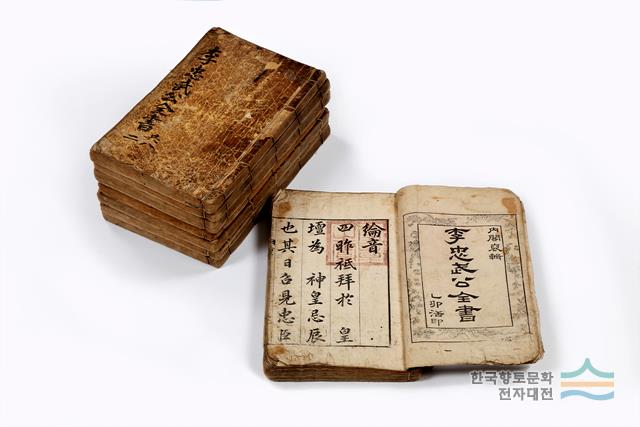 李忠武公全書
內閣裒輯
李忠武公全書
乙卯活印
綸音
昨祗拜於 皇
壇為 神皇忌辰
也其日召見忠臣
한국향토문화
전자대전